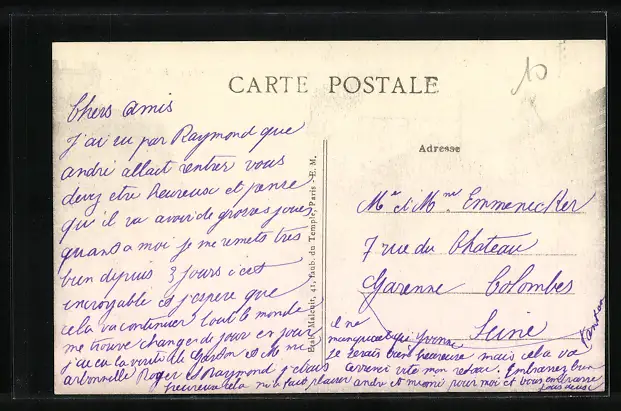 CARTE POSTALE
10
Chers amis
j'ai vu par Raymond que
andré allait rentrer vous
devez etre heureuse et pense
qu'il va avoir de grosses joues
quand a moi je me remets tres
bien depuis 3 jours c'est
incroyable et j'espère que
cela va continuer tout le monde
me trouve changer de jour en jour
j'ai eu la visite de Gaston et de mi
arbonville Roger et Raymond j'étais
heureuse cela m'a fait plaisir
Adresse
Mr et Mme Emmenecker
7 rue du Chateau
Garenne Colombes
Seine
il ne
manquait que Yvonne
je serais bien heureuse mais cela va
arriver vite mon retour. Embrassez bien
andre et mimi pour moi et vous embrasse
Edit. Malcuit, 41, faub. du Temple, Paris - E. M.